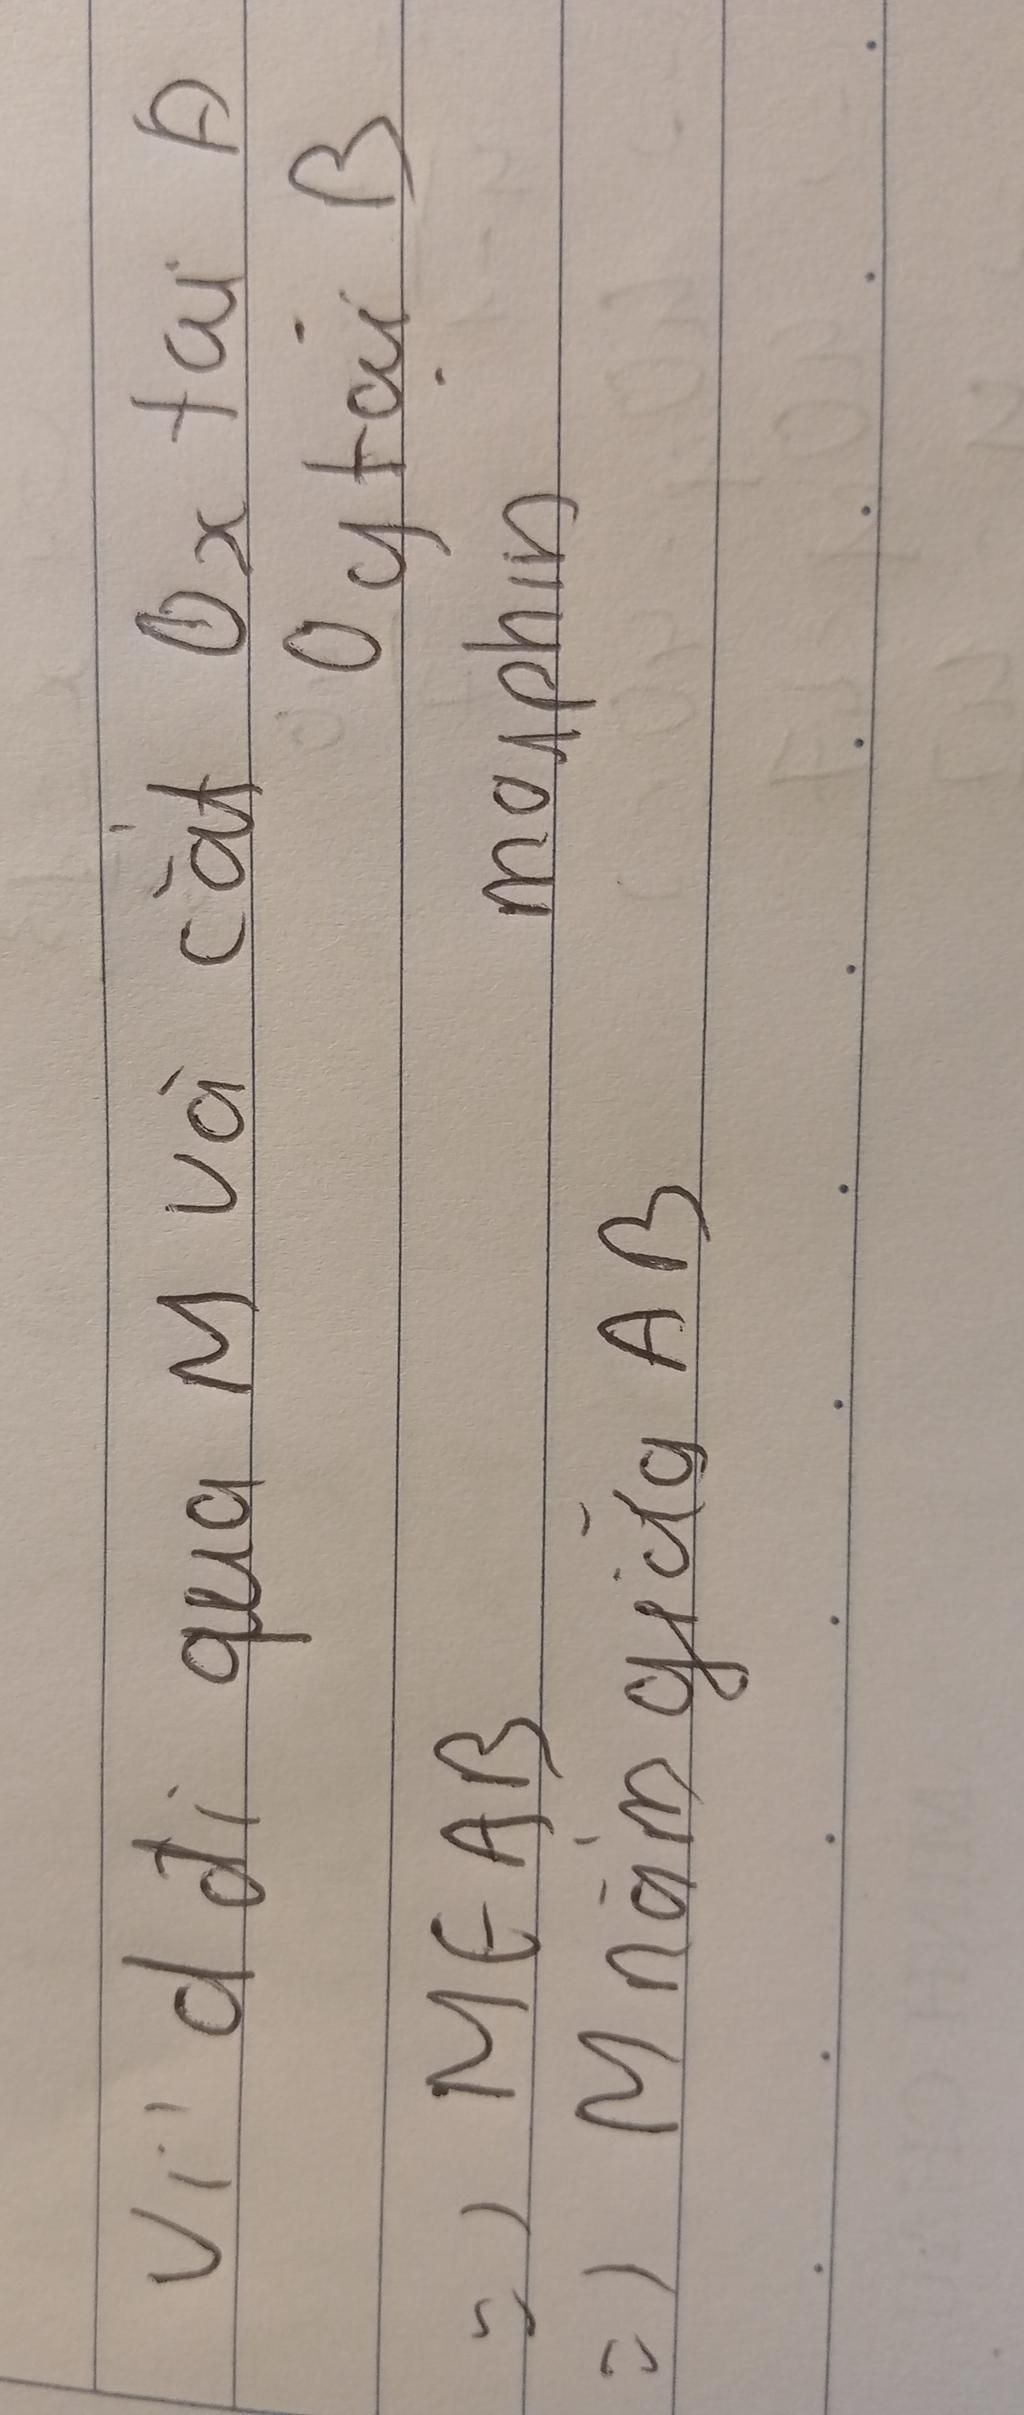 Vì d đi qua M và cắt Ox tại A
Oy tại B
=) M ∈ AB
morphin
=) M nằm giữa AB